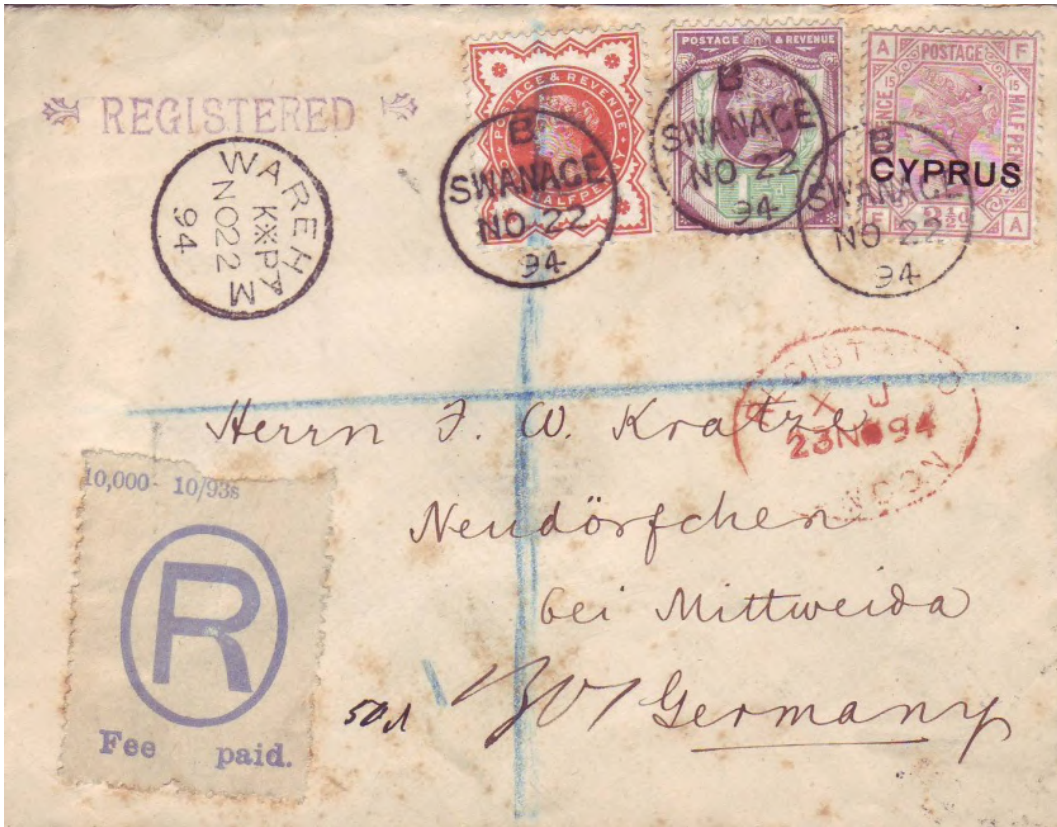 REGISTERED
WAREHAM
K PM
NO 22
94
POSTAGE & REVENUE
HALFPENNY
B
SWANAGE
NO 22
94
POSTAGE & REVENUE
1½d
B
SWANAGE
NO 22
94
A POSTAGE F
15 15
PENCE HALFPENNY
CYPRUS
F 2½d A
B
SWANAGE
NO 22
94
REGISTERED
X J
23 NO 94
LONDON
Herrn J. W. Kratze
Neudörfchen
bei Mittweida
Germany
10,000 - 10/93s
R
Fee paid.